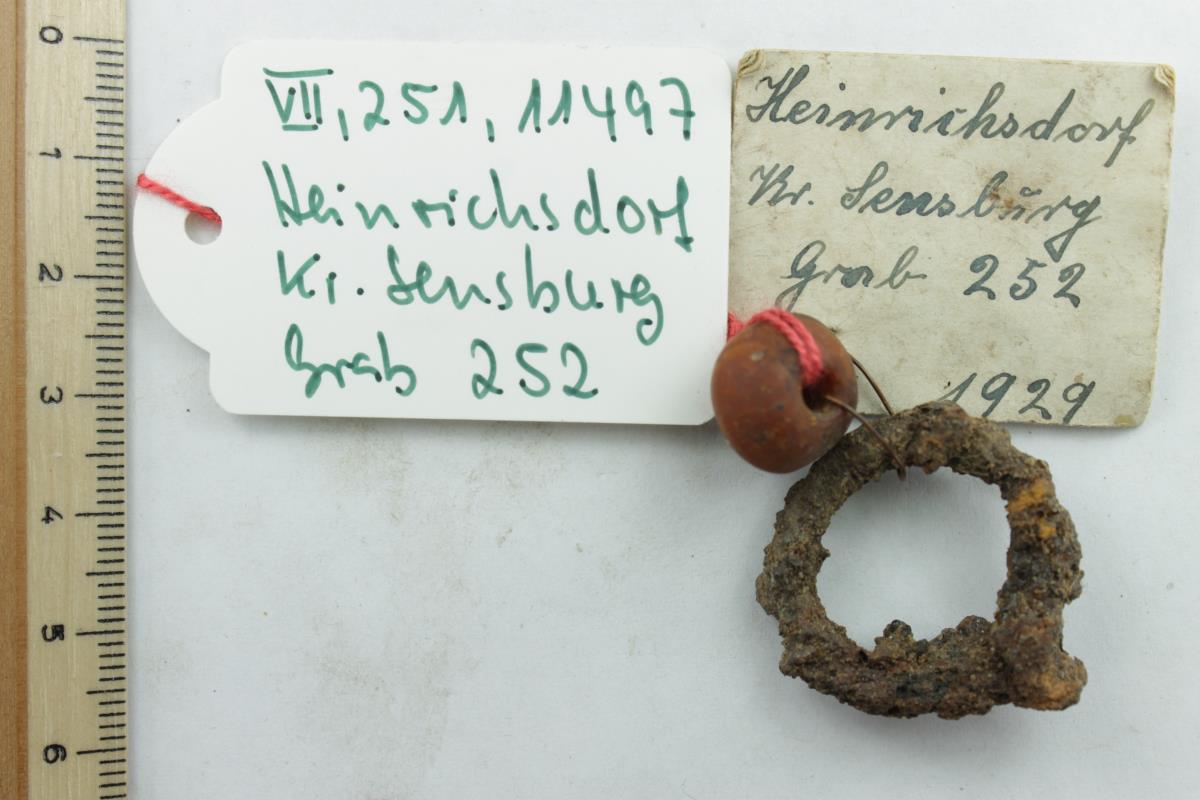 VII, 251, 11497
Heinrichsdorf
Kr. Sensburg
Grab 252
Heinrichsdorf
Kr. Sensbŭrg
Grab 252
1929
0
1
2
3
4
5
6